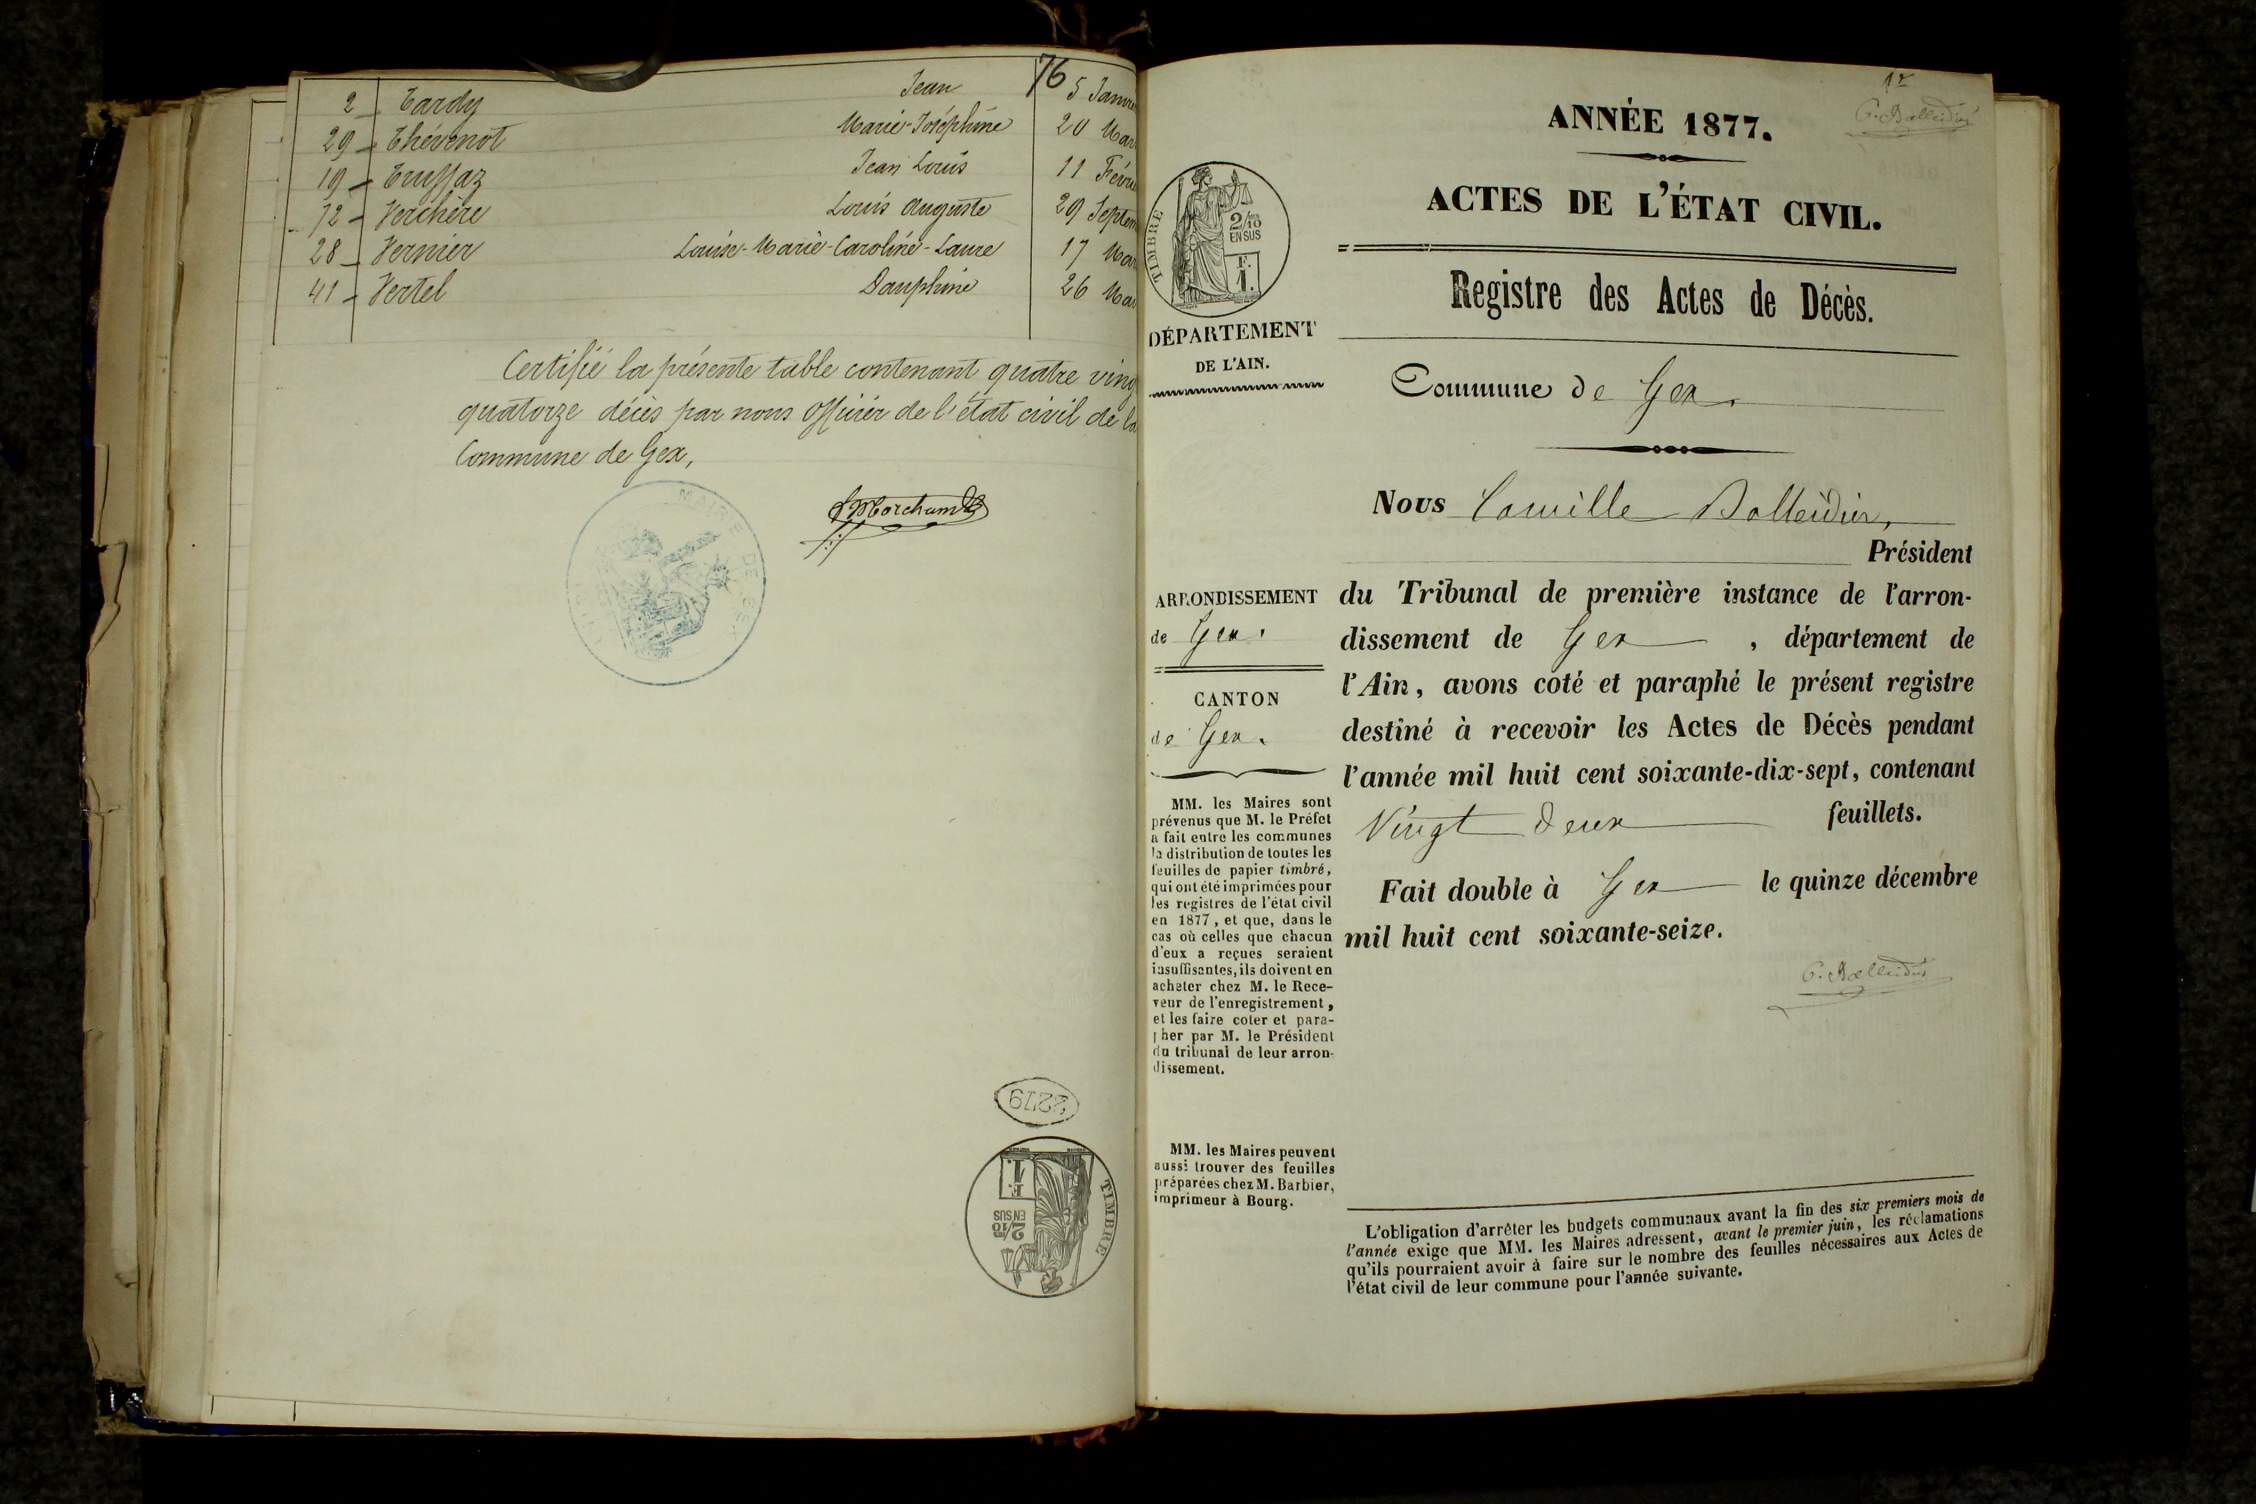 76
2 Tardy Jean 5 Janvie
29 Thévenot Marie-Joséphine 20 Mar
19 Truffaz Jean Louis 11 Févri
72 Verchère Louis Auguste 29 Septem
28 Vernier Louise-Marie-Caroline-Laure 17 Mar
41 Vertel Dauphine 26 Mar
Certifié la présente table contenant quatre ving
quatorze décès par nous Officier de l'état civil de la
Commune de Gex,
MAIRIE DE GEX
2279
TIMBRE
2/10
EN SUS
F.
1.
1er
C. Balleidier
ANNÉE 1877.
ACTES DE L'ÉTAT CIVIL.
Registre des Actes de Décès.
TIMBRE
2/10
EN SUS
F.
1.
DÉPARTEMENT
DE L'AIN.
Commune de Gex.
Nous Camille Balleidier,
Président
du Tribunal de première instance de l'arron-
dissement de Gex, département de
l'Ain, avons coté et paraphé le présent registre
destiné à recevoir les Actes de Décès pendant
l'année mil huit cent soixante-dix-sept, contenant
Vingt deux feuillets.
Fait double à Gex le quinze décembre
mil huit cent soixante-seize.
C. Balleidier
ARRONDISSEMENT
de Gex.
CANTON
de Gex.
MM. les Maires sont
prévenus que M. le Préfet
a fait entre les communes
la distribution de toutes les
feuilles de papier timbré,
qui ont été imprimées pour
les registres de l'état civil
en 1877, et que, dans le
cas où celles que chacun
d'eux a reçues seraient
insuffisantes, ils doivent en
acheter chez M. le Rece-
veur de l'enregistrement,
et les faire coter et para-
pher par M. le Président
du tribunal de leur arron-
dissement.
MM. les Maires peuvent
aussi trouver des feuilles
préparées chez M. Barbier,
imprimeur à Bourg.
L'obligation d'arrêter les budgets communaux avant la fin des six premiers mois de
l'année exige que MM. les Maires adressent, avant le premier juin, les réclamations
qu'ils pourraient avoir à faire sur le nombre des feuilles nécessaires aux Actes de
l'état civil de leur commune pour l'année suivante.